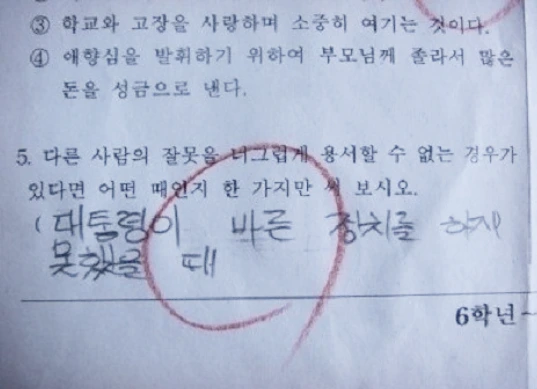 ③ 학교와 고장을 사랑하며 소중히 여기는 것이다.
④ 애향심을 발휘하기 위하여 부모님께 졸라서 많은
돈을 성금으로 낸다.
5. 다른 사람의 잘못을 너그럽게 용서할 수 없는 경우가
있다면 어떤 때인지 한 가지만 써 보시오.
(대통령이 바른 정치를 하지
못했을 때
6학년-